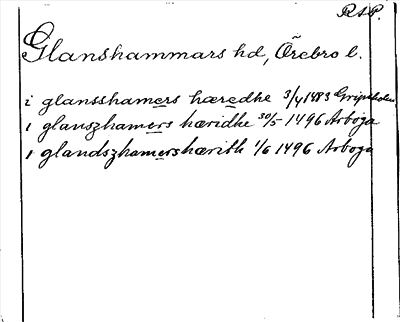 R A P.
Glanshammars hd, Örebro l.
i glansshamers hæredhe 3/4 1483 Gripsholm
i glanszhamers hæridhe 30/5 1496 Arboga
i glandszhamers hærith 1/6 1496 Arboga